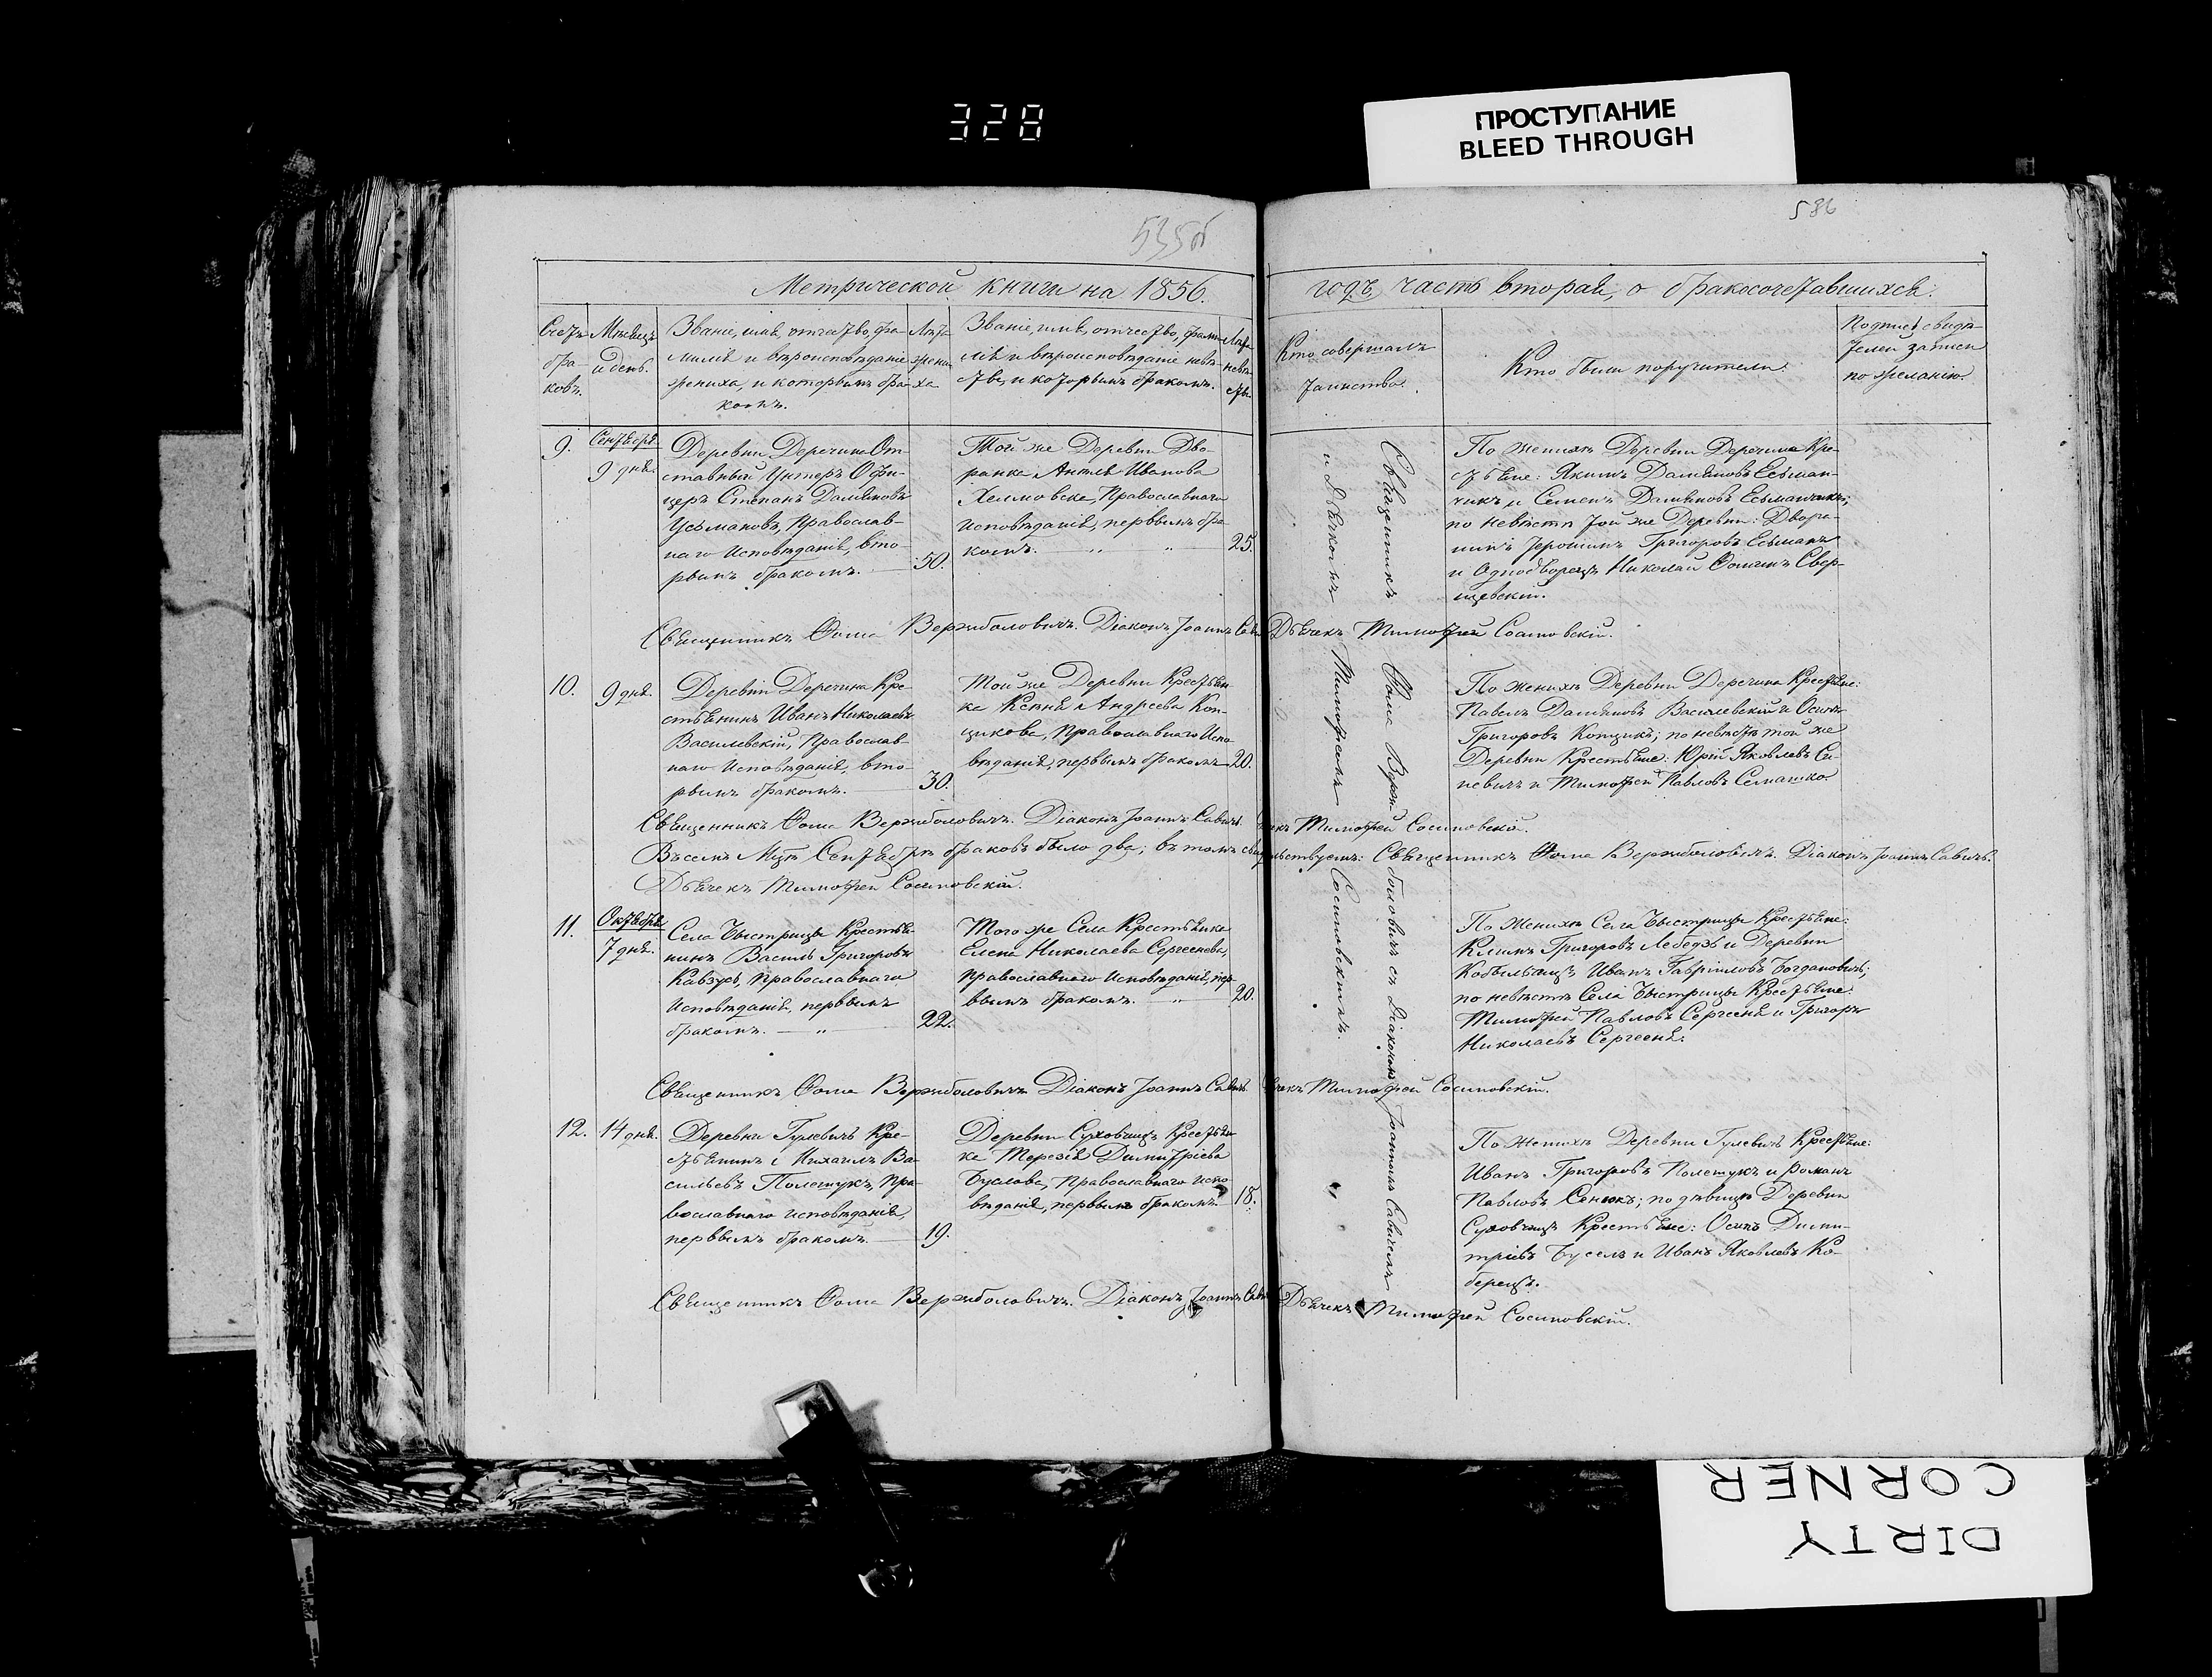 328
ПРОСТУПАНИЕ
BLEED THROUGH
535об
536
Метрической книги на 1856. годъ часть вторая, о бракосочетавшихся.
Счетъ бра-ковъ.
Мѣсяцъ и день.
Званіе, имя, отчество, фа-
милія и вѣроисповѣданіе
жениха, и которымъ бра-
комъ.
Лѣта жени-ха
Званіе, имя, отчество, фами-
лія и вѣроисповѣданіе невѣ-
сты, и которымъ бракомъ.
Лѣта невѣ-сты.
Кто совершалъ
таинство.
Кто были поручители.
Подпись свидѣ-
телей записи
по желанію.
9.
Сентября
9 дня.
Деревни Деречина От-
ставный Унтеръ Офи-
церъ Степанъ Даміяновъ
Усьмановъ, Православ-
наго Исповѣданія, вто-
рымъ бракомъ.
50.
Той же Деревни Дво-
рянка Антля Иванова
Хелмовска, Православнаго
исповѣданія, первымъ бра-
комъ.
25.
По Женихѣ Деревни Деречина Кре-
стьяне: Якимъ Даміяновъ Есьман-
чикъ и Семенъ Даміяновъ Есьманчикъ;
по невѣстѣ той же Деревни: Дворя-
нинъ Іеронимъ Григоровъ Есьманъ
и Однодворецъ Николай Фоминъ Свер-
щевскій.
Священникъ Фома Вержболовичъ. Діаконъ Іоаннъ Савичъ Дьячекъ Тимофей Сосиновскій.
10.
9 дня.
Деревни Деречина Кре-
стьянинъ Иванъ Николаевъ
Василевскій, Православ-
наго Исповѣданія, вто-
рымъ бракомъ.
30.
Той же Деревни Крестьян-
ка Ксенія Андреева Коп-
щикова, Православнаго Испо-
вѣданія, первымъ бракомъ
20.
По Женихѣ Деревни Деречина Крестьяне:
Павелъ Даміяновъ Василевскій и Осипъ
Григоровъ Копщикъ; по невѣстѣ той же
Деревни Крестьяне: Юрій Яковлевъ Си-
невичъ и Тимофей Павловъ Семашко.
Священникъ Фома Вержболовичъ. Діаконъ Іоаннъ Савичъ. Дьячекъ Тимофей Сосиновскій.
Въ семъ Мцѣ Сентябрѣ браковъ было два; въ томъ свидѣтельствуемъ: Священникъ Фома Вержболовичъ. Діаконъ Іоаннъ Савичъ.
Дьячекъ Тимофей Сосиновскій.
11.
Октября
7 дня.
Села Быстрицы Крестья-
нинъ Василь Григоровъ
Кавзусъ, Православнаго
Исповѣданія, первымъ
бракомъ.
22.
Того же Села Крестьянка
Елена Николаева Сергеенева,
Православнаго Исповѣданія, пер-
вымъ бракомъ.
20.
По Женихѣ Села Быстрицы Крестьяне:
Климъ Григоровъ Лебедзь и Деревни
Кобыльчицъ Иванъ Гавріиловъ Богдановичъ;
по невѣстѣ Села Быстрицы Крестьяне:
Тимофей Павловъ Сергееня и Григоръ
Николаевъ Сергееня.
Священникъ Фома Вержболовичъ Діаконъ Іоаннъ Савичъ Дьячекъ Тимофей Сосиновскій.
12.
14 дня.
Деревни Гулевичъ Кре-
стьянинъ Михаилъ Ва-
сильевъ Полещукъ, Пра-
вославнаго исповѣданія,
первымъ бракомъ.
19.
Деревни Суховчицъ Крестьян-
ка Терезія Димитріева
Буслова, Православнаго испо-
вѣданія, первымъ бракомъ
18.
По Женихѣ Деревни Гулевичъ Крестьяне:
Иванъ Григоровъ Полещукъ и Романъ
Павловъ Сенюкъ; по дѣвицѣ Деревни
Суховчицъ Крестьяне: Осипъ Дими-
тріевъ Буселъ и Иванъ Яковлевъ Ко-
берецъ.
Священникъ Фома Вержболовичъ. Діаконъ Іоаннъ Савичъ Дьячекъ Тимофей Сосиновскій.
Священникъ Фома Вержболовичъ съ Діакономъ Іоанномъ Савичемъ
и Дьячкомъ Тимофеемъ Сосиновскимъ.
DIRTY
CORNER